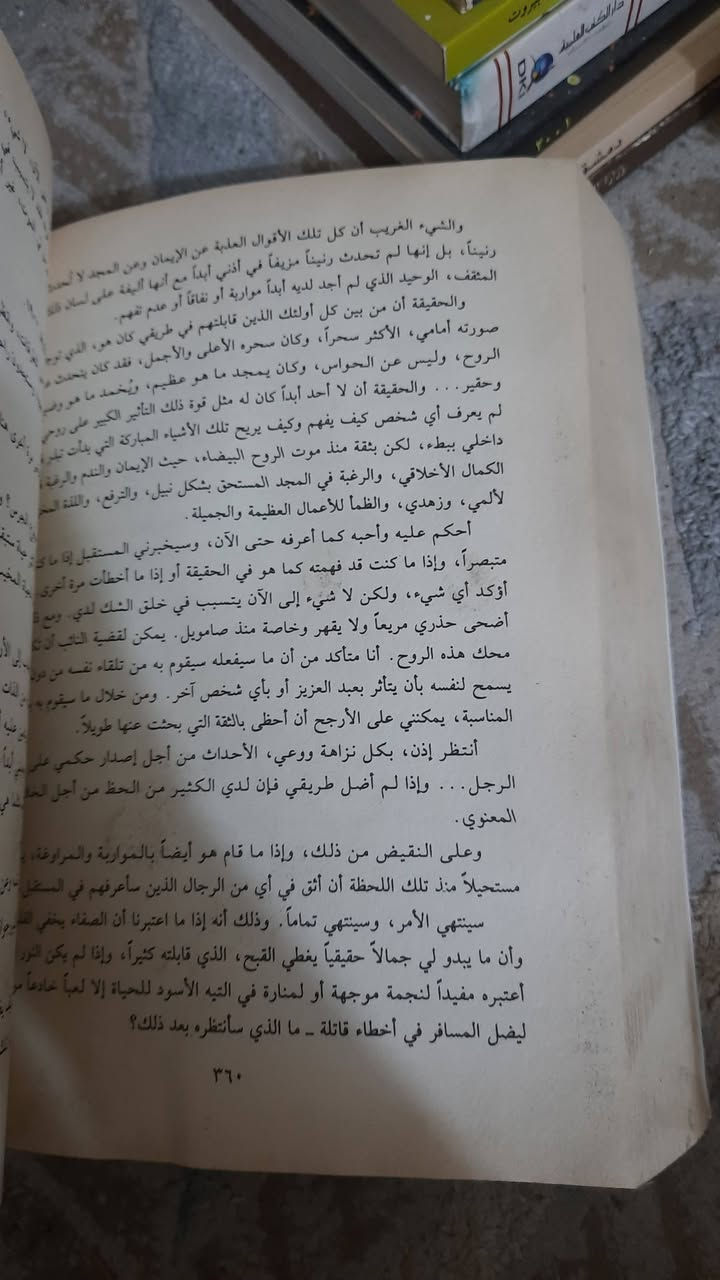 بيروت
دار الكتب العلمية
DKi
٢٠٠١
دمشق
والشيء الغريب أن كل تلك الأقوال العذبة عن الإيمان وعن المجد لا تُحدث
رنيناً، بل إنها لم تحدث رنيناً مزيفاً في أذني أبداً مع أنها أليفة على لسان ذلك
المثقف، الوحيد الذي لم أجد لديه أبداً مواربة أو نفاقاً أو عدم تفهم.
والحقيقة أن من بين كل أولئك الذين قابلتهم في طريقي كان هو، الذي
صورته أمامي، الأكثر سحراً، وكان سحره الأعلى والأجمل، فقد كان يتحدث
الروح، وليس عن الحواس، وكان يمجد ما هو عظيم، ويُخمد ما هو
وحقير... والحقيقة أن لا أحد أبداً كان له مثل قوة ذلك التأثير الكبير على روحي
لم يعرف أي شخص كيف يفهم وكيف يريح تلك الأشياء المباركة التي بدأت
داخلي ببطء، لكن بثقة منذ موت الروح البيضاء، حيث الإيمان والندم والرغبة
الكمال الأخلاقي، والرغبة في المجد المستحق بشكل نبيل، والترفع، واللذة
لألمي، وزهدي، والظمأ للأعمال العظيمة والجميلة.
أحكم عليه وأحبه كما أعرفه حتى الآن، وسيخبرني المستقبل إذا ما
متبصراً، وإذا ما كنت قد فهمته كما هو في الحقيقة أو إذا ما أخطأت مرة أخرى.
أؤكد أي شيء، ولكن لا شيء إلى الآن يتسبب في خلق الشك لدي. ومع
أضحى حذري مريعاً ولا يقهر وخاصة منذ صامويل. يمكن لقضية النائب أن
محك هذه الروح. أنا متأكد من أن ما سيفعله سيقوم به من تلقاء نفسه من دون
يسمح لنفسه بأن يتأثر بعبد العزيز أو بأي شخص آخر. ومن خلال ما سيقوم به
المناسبة، يمكنني على الأرجح أن أحظى بالثقة التي بحثت عنها طويلاً.
أنتظر إذن، بكل نزاهة ووعي، الأحداث من أجل إصدار حكمي على
الرجل... وإذا لم أضل طريقي فإن لدي الكثير من الحظ من أجل
المعنوي.
وعلى النقيض من ذلك، وإذا ما قام هو أيضاً بالمواربة والمراوغة،
مستحيلاً منذ تلك اللحظة أن أثق في أي من الرجال الذين سأعرفهم في المستقبل
سينتهي الأمر، وسينتهي تماماً. وذلك أنه إذا ما اعتبرنا أن الصفاء يخفي
وأن ما يبدو لي جمالاً حقيقياً يغطي القبح، الذي قابلته كثيراً، وإذا لم يكن النور
أعتبره مفيداً لنجمة موجهة أو لمنارة في التيه الأسود للحياة إلا لعباً خادعاً
ليضل المسافر في أخطاء قاتلة ـ ما الذي سأنتظره بعد ذلك؟
٣٦٠